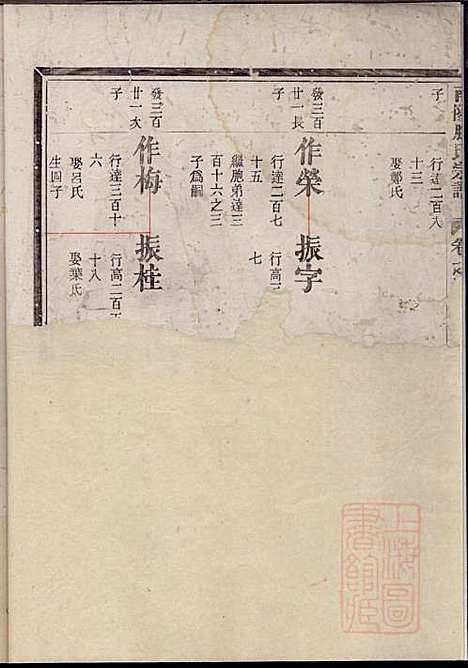 子
行達二百八
十三
娶鄭氏
發三百
廿一長
子
作榮
行達二百七
十五
繼胞弟達三
百十六之三
子為嗣
振宇
行高
七
發三百
廿一次
子
作梅
行達三百十
六
娶呂氏
生四子
振桂
行高二百
十八
娶葉氏
宗譜
卷
上海圖
書館